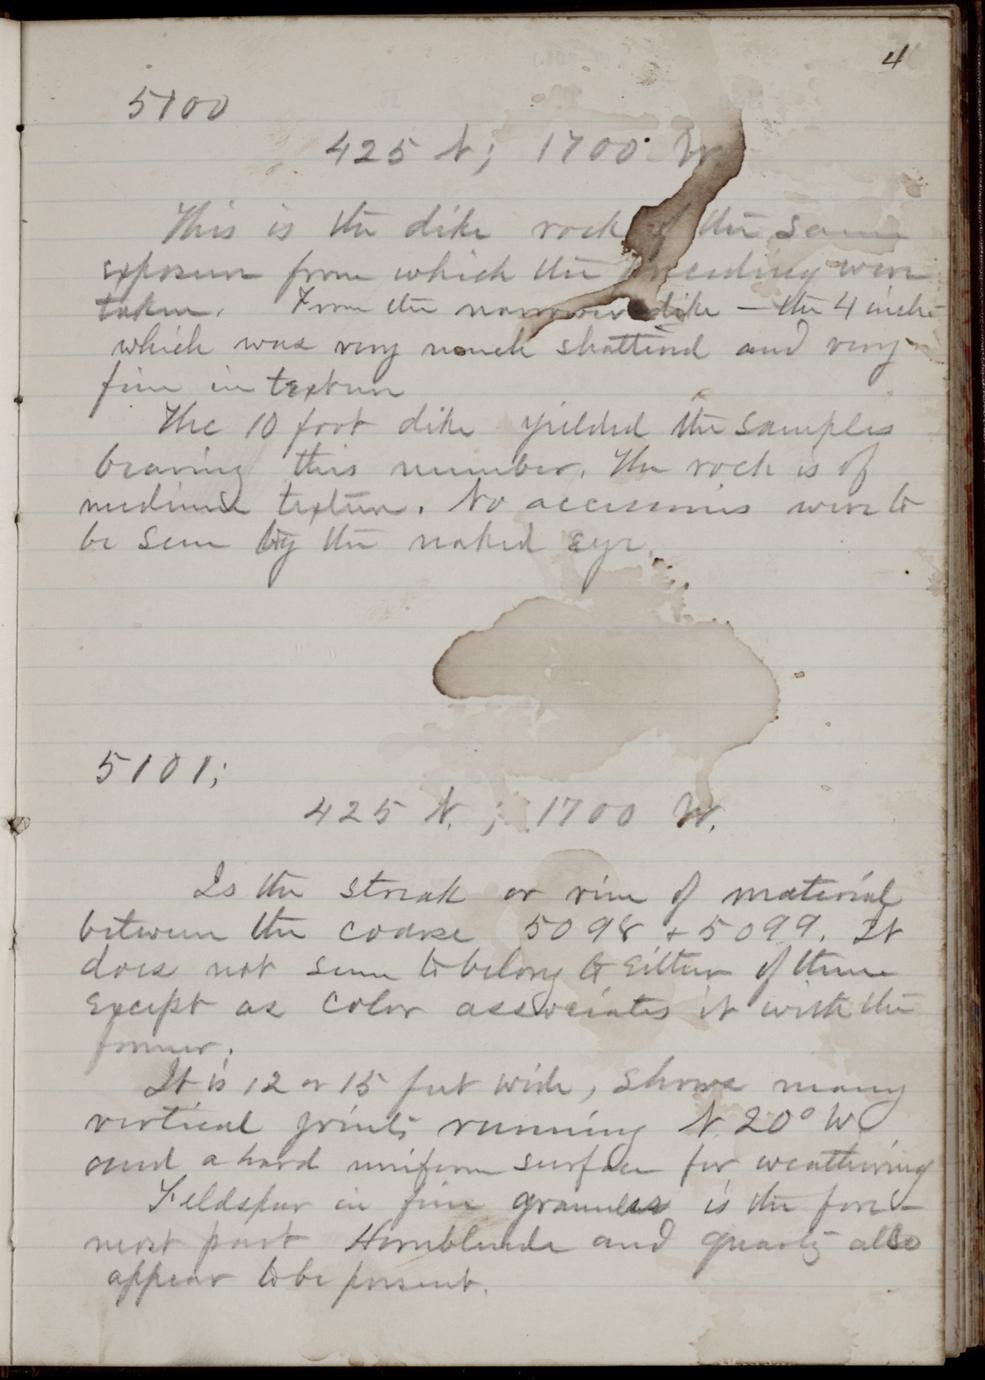 4
5100
425 N; 1700 W
This is the dike rock of the same
exposure from which the preceding were
taken. From the narrower dike — the 4 inch
which was very much shattered and very
fine in texture
The 10 foot dike yielded the samples
bearing this number. The rock is of
medium texture. No accessories were to
be seen by the naked eye.
5101;
425 N. ; 1700 W.
Is the streak or vein of material
between the coarse 5098 + 5099. It
does not seem to belong to either of these
except as color associates it with the
former.
It is 12 or 15 feet wide, shows many
vertical joints running N. 20° W
and a hard uniform surface for weathering
Feldspar in fine granules is the fore-
most part Hornblende and quartz also
appear to be present.